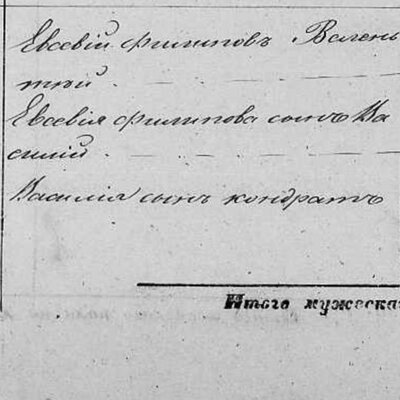 Евсевій Филиповъ Вален
тій
Евсевія Филипова сынъ Ва
силій
Василія сынъ Кондратъ
Итого мужеска